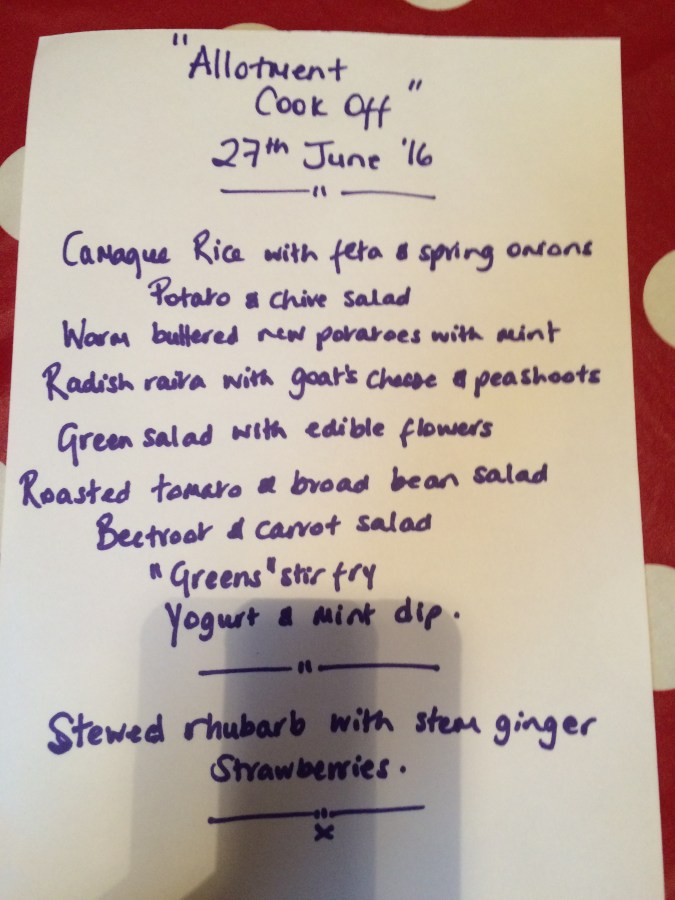 "Allotment
Cook Off"
27th June '16
Camague Rice with feta & spring onions
Potato & chive salad
Warm buttered new potatoes with mint
Radish raita with goat's cheese & peashoots
Green salad with edible flowers
Roasted tomato & broad bean salad
Beetroot & carrot salad
"Greens" stir fry
Yogurt & mint dip.
Stewed rhubarb with stem ginger
Strawberries.
x